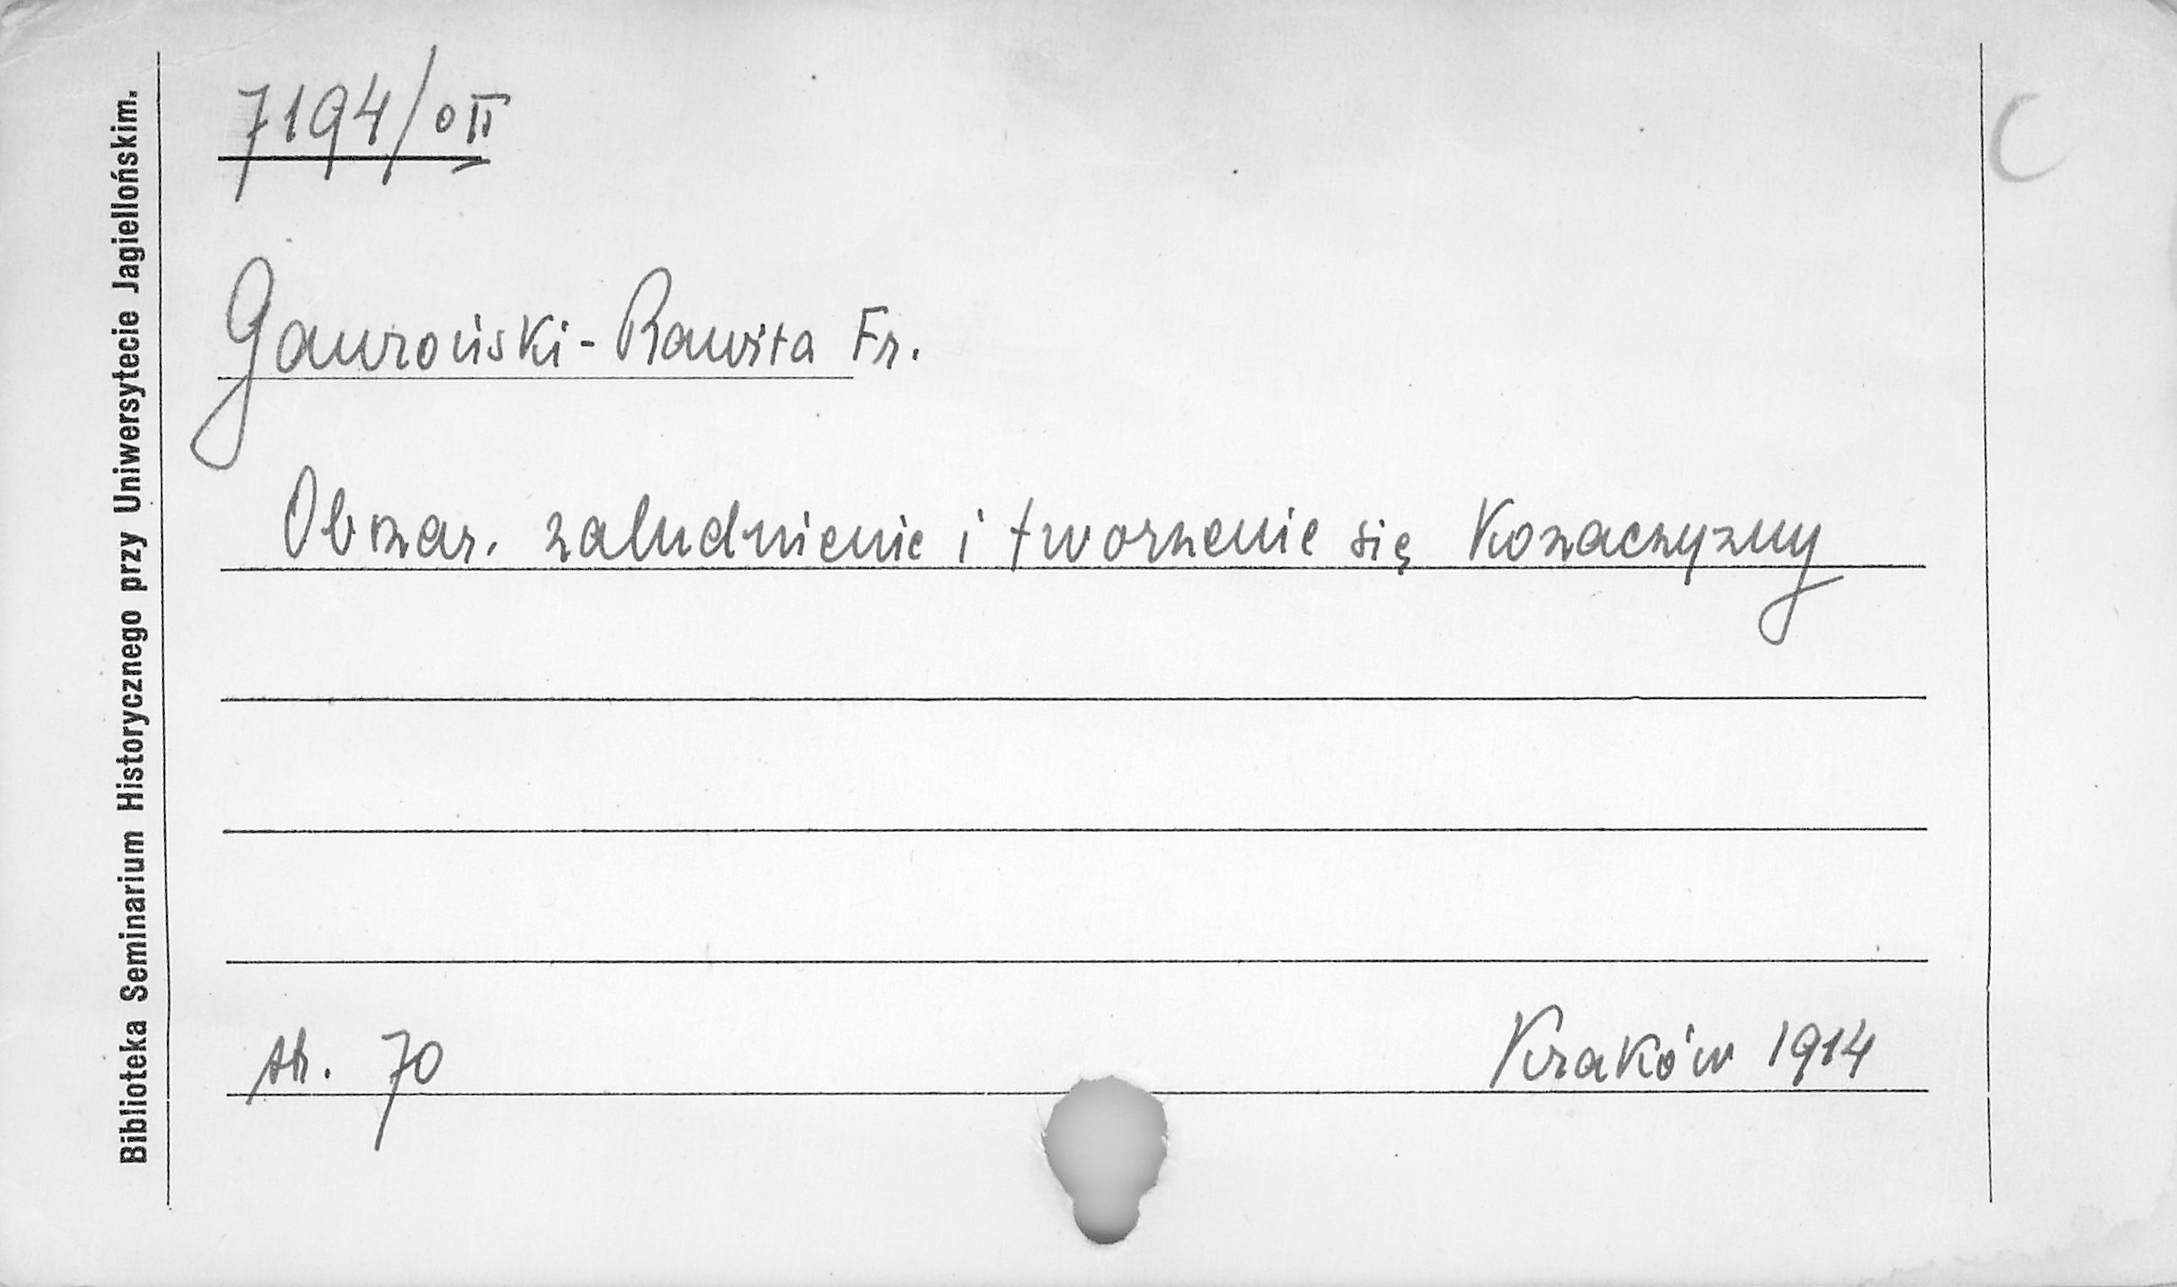 7194/0 II
C
Gawroński-Rawita Fr.
Obszar. zaludnienie i tworzenie się Kozaczyzny
str. 70 Kraków 1914
Biblioteka Seminarium Historycznego przy Uniwersytecie Jagiellońskim.